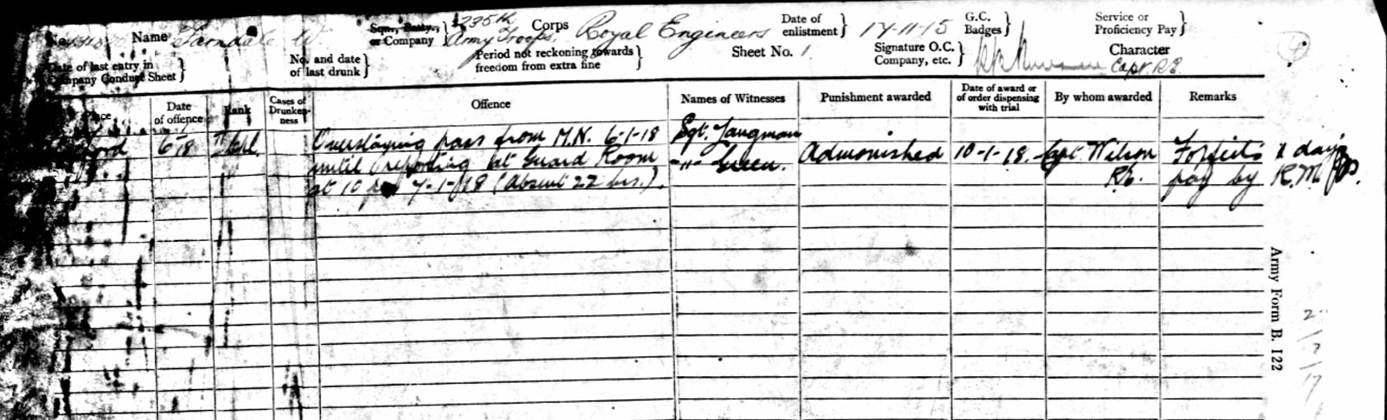 No. Name Farndale W Sqn., Batty., or Company } 235th Army Troops Corps Royal Engineers Date of enlistment } 17-11-15 G.C. Badges } Service or Proficiency Pay }
Date of last entry in Company Conduct Sheet } No. and date of last drunk } Period not reckoning towards freedom from extra fine } Sheet No. 1 Signature O.C. Company, etc. } Capt. R.E. Character
Place Date of offence Rank Cases of Drunkenness Offence Names of Witnesses Punishment awarded Date of award or of order dispensing with trial By whom awarded Remarks
Overstaying pass from M.N. 6-1-18 Sgt. Yaugman
until reporting at Guard Room -"- Green. Admonished 10-1-18. Capt Wilson Forfeits 1 days
at 10 pm 7-1-18 (Absent 22 hrs.). R.E. pay by R.W.
Army Form B. 122
2/7/17